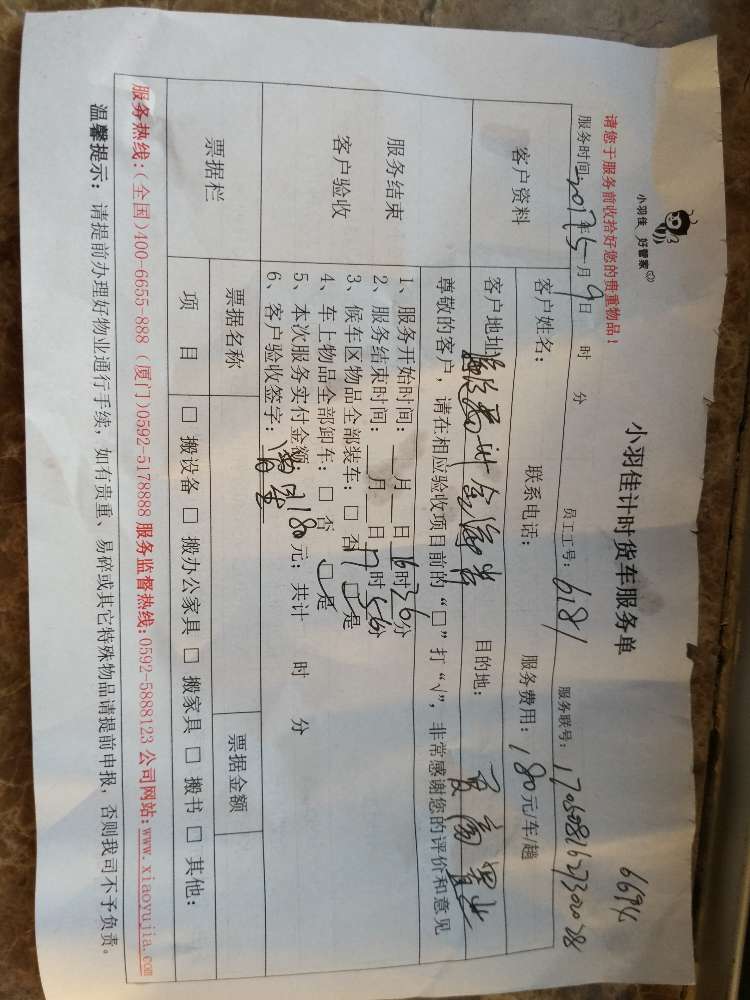 小羽佳 好管家
小羽佳计时货车服务单
6694
请您于服务前收拾好您的贵重物品！
服务时间：2017年5月9日 时 分 员工工号：6181 服务联号：
客户资料
客户姓名： 联系电话： 服务费用：180元/车/趟
客户地址： 目的地：
服务结束
客户验收
尊敬的客户，请在相应验收项目前的“□”打“√”，非常感谢您的评价和意见
1、服务开始时间： 月 日16时26分
2、服务结束时间： 月 日17时56分
3、候车区物品全部装车：□ 否 □ 是
4、车上物品全部卸车：□ 否 □ 是
5、本次服务实付金额：180元；共计 时 分
6、客户验收签字：
票据栏
票据名称 票据金额
项 目 □ 搬设备 □ 搬办公家具 □ 搬家具 □ 搬书 □ 其他：
服务热线：(全国)400-6655-888 (厦门)0592-5178888 服务监督热线：0592-5888123 公司网站：www.xiaoyujia.com
温馨提示：请提前办理好物业通行手续，如有贵重、易碎或其它特殊物品请提前申报，否则我司不予负责。